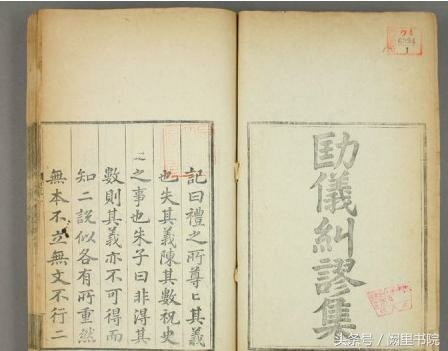 勘儀糾謬集
記曰禮之所尊〻其義
也失其義陳其數祝史
之事也朱子曰非得其
數則其義亦不可得而
知二說似各有所重然
無本不立無文不行二
头条号 / 阙里书院